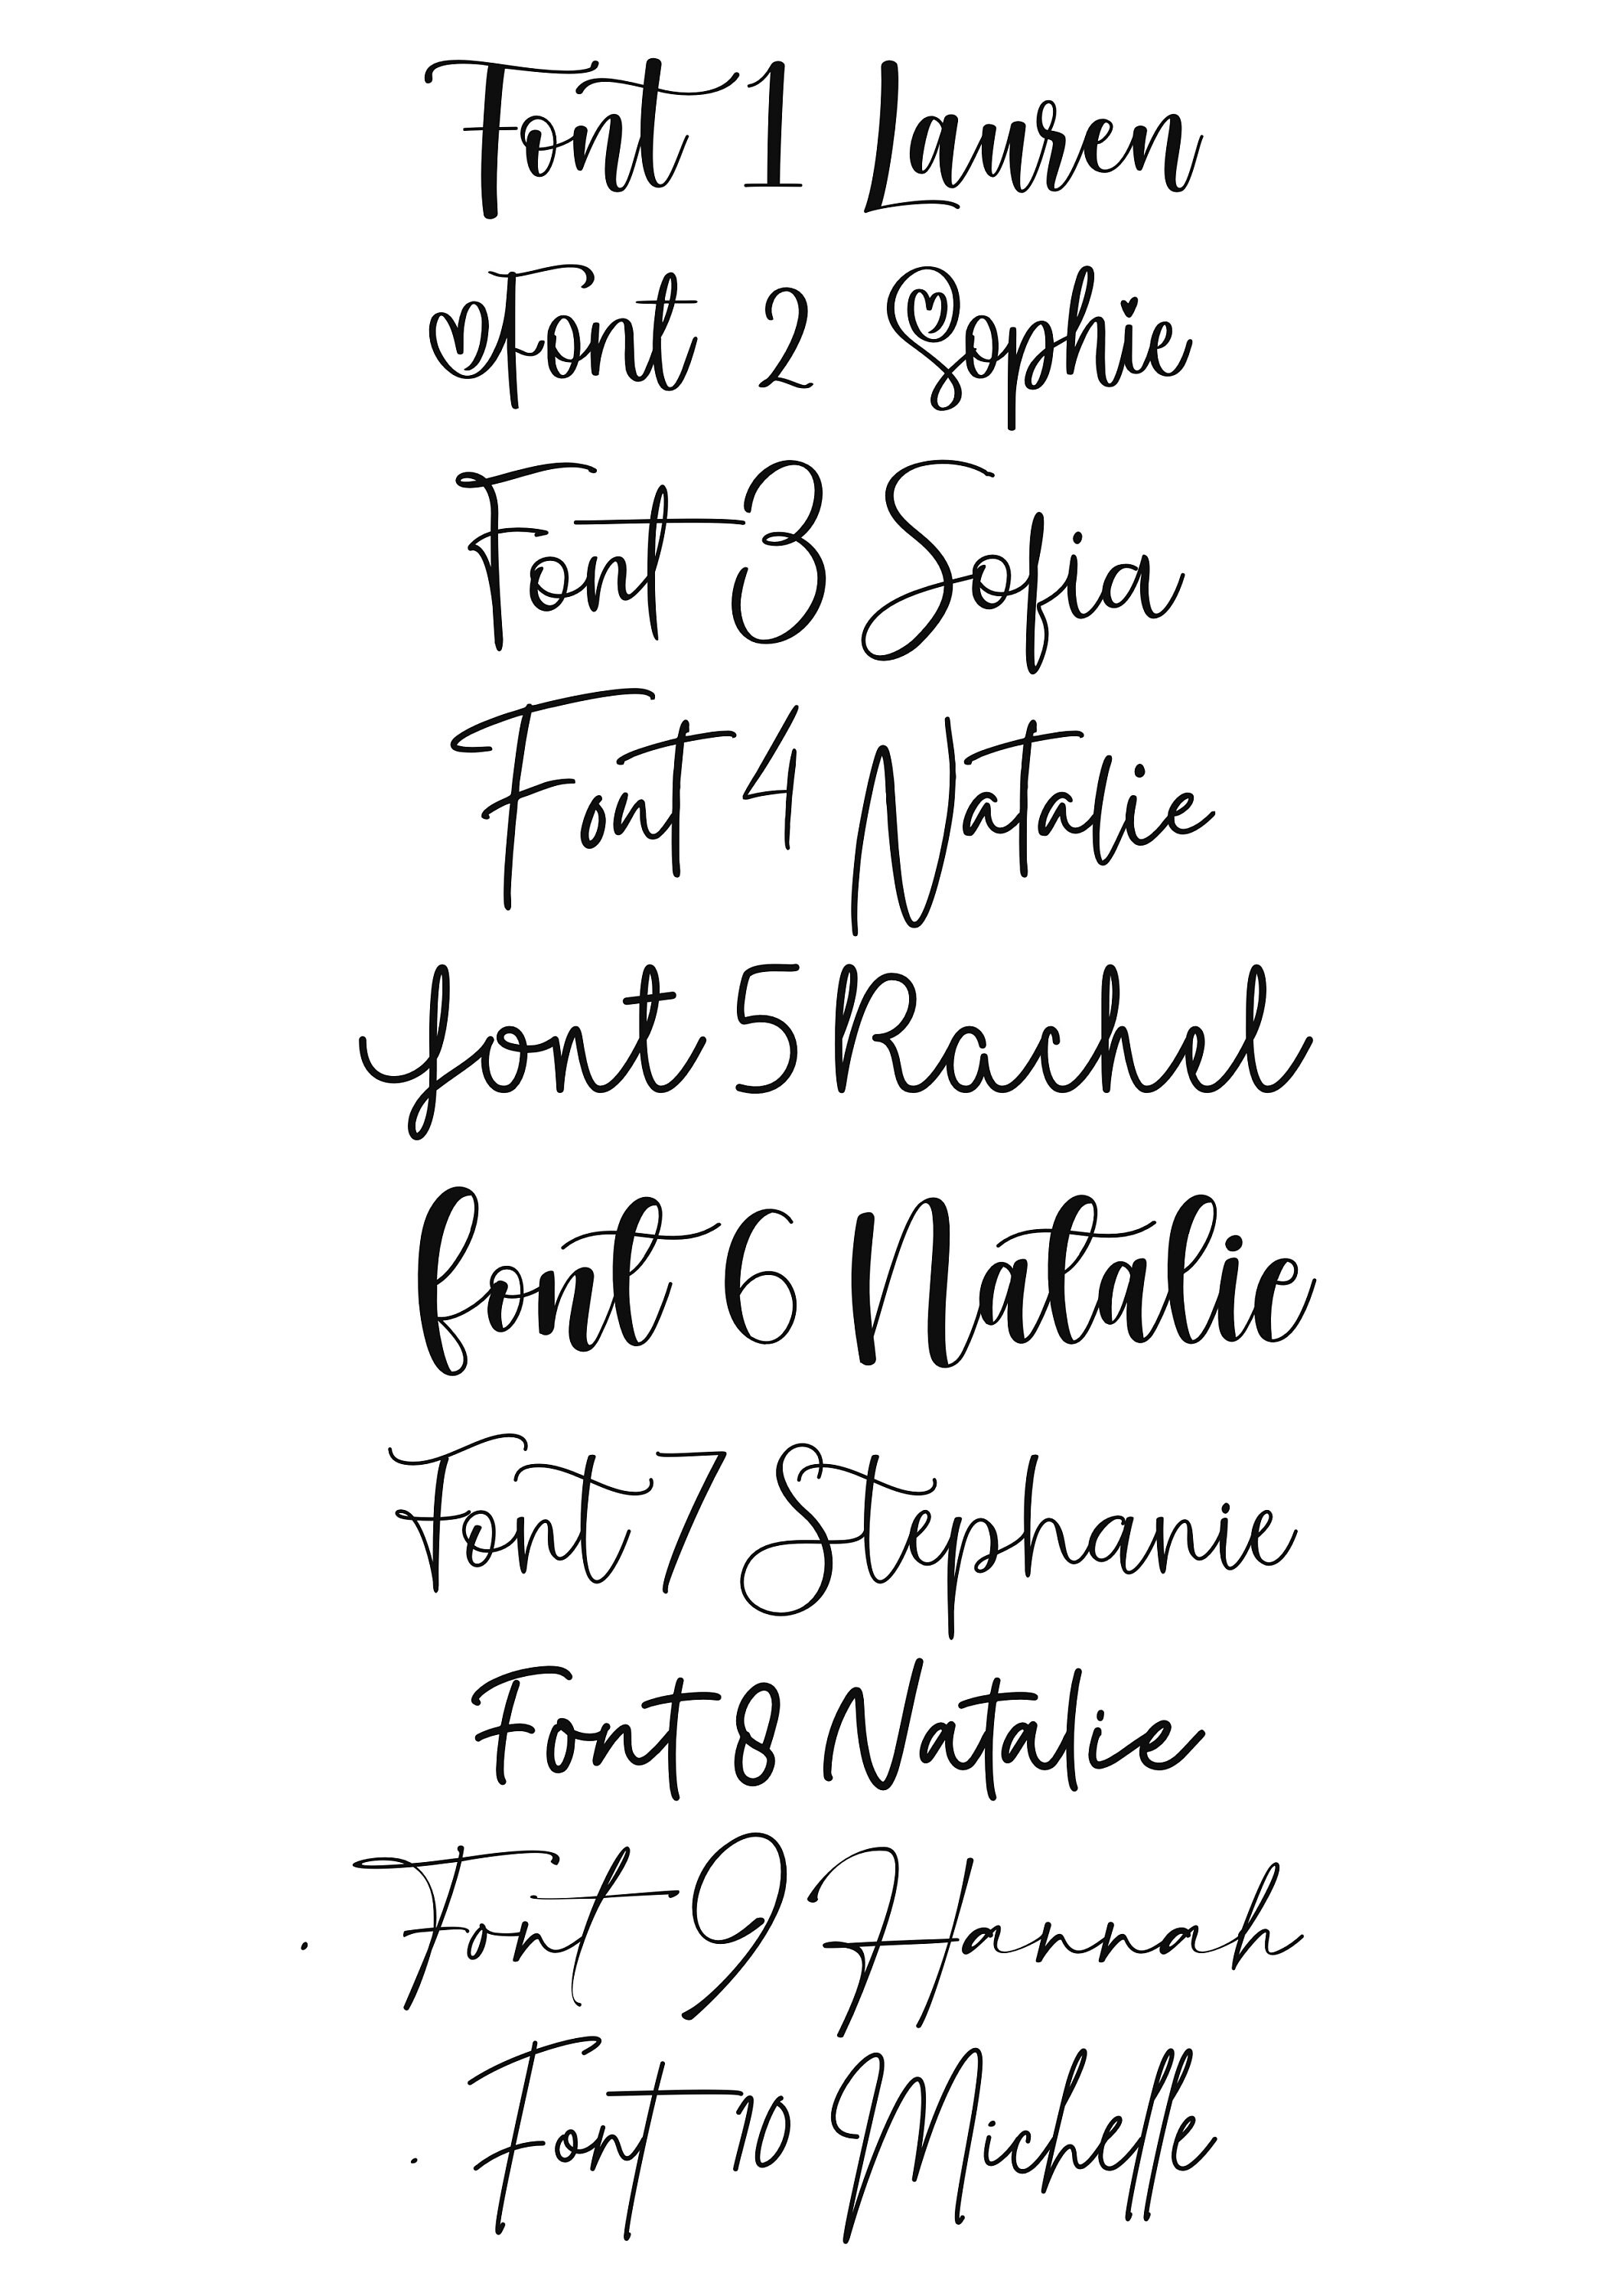 Font 1 Lauren
Font 2 Sophie
Font 3 Sofia
Font 4 Natalie
font 5 Rachel
font 6 Natalie
Font 7 Stephanie
Font 8 Natalie
. Font 9 Hannah
. Font 10 Michelle